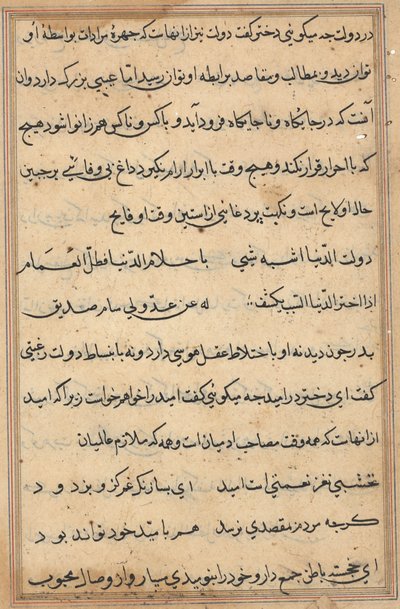 در دولت چه میکوئی دختر کفت دولت نیز از انهاست که چهرهٔ مرادات بواسطهٔ او
توان دید و بمطالب و مقاصد برابطه او توان رسید اما عیبی بزرک دارد وان
آنست که در جایکاه و ناجایکاه فرود آید و با کس و ناکس همزانو شود هیچ
که با احرار قرار نکند و هیچ وقت با ابرار ارام نکیرد داغ بی وفائی بر جبین
حال او لایح است و نکبت بر دغائی از استین وقت او فایح
دولت الدنیا اشبه شیی باحلام الدنیا فظل الغمام
اذا اختبر الدنیا لبیب تکشفت له عن عدو لی سام صدیق
پدر چون دید نه او باختلاط عقل هوسی دارد و نه بانبساط دولت رغبتی
کفت ای دختر در امید چه میکوئی کفت امید را خواهم خواست زیرا که امید
از انهاست که همه وقت مصاحب ادمیان است و همه که ملازم عالمیان
نخشبی نغز نعمتی است امید ای بسا رنک غم کز و بزدود
کرچه مردم بمقصدی نرسد هم بامید خود تواند بود
ای خجسته باطن جمع دار و خود را بنومیدی مسپار و از وصال محبوب